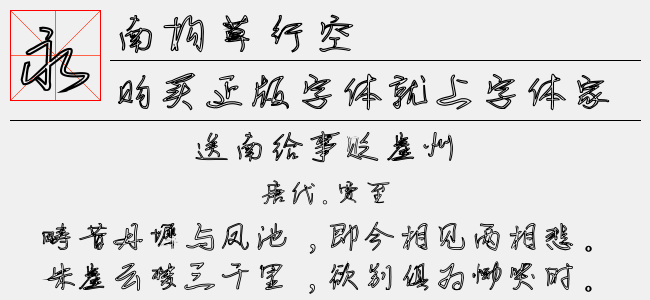 永
南构草行空
购买正版字体就上字体家
送南给事贬崖州
唐代。贾至
畴昔丹墀与凤池，即今相见两相悲。
朱崖云梦三千里，欲别俱为恸哭时。